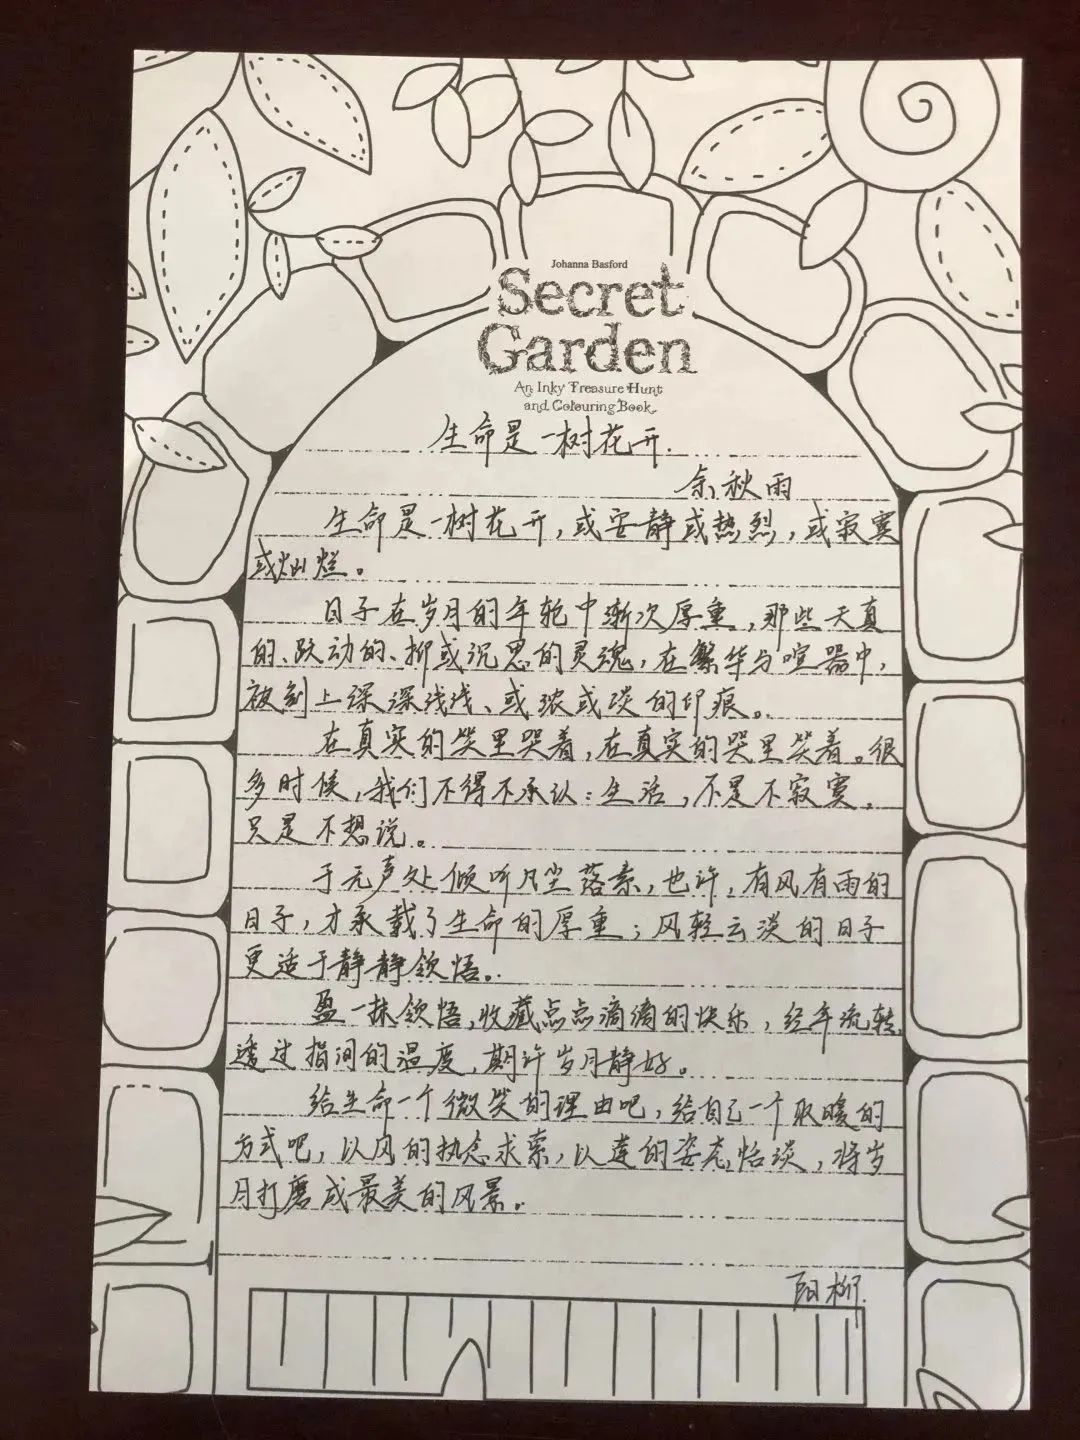 Johanna Basford
Secret
Garden
An Inky Treasure Hunt
and Colouring Book
生命是一树花开.
余秋雨
生命是一树花开，或安静或热烈，或寂寞
或灿烂。
日子在岁月的年轮中渐次厚重，那些天真
的、跃动的、抑或沉思的灵魂，在繁华与喧器中，
被刻上深深浅浅、或浓或淡的印痕。
在真实的笑里哭着，在真实的哭里笑着。很
多时候，我们不得不承认：生活，不是不寂寞，
只是不想说。
于无声处倾听凡尘落素，也许，有风有雨的
日子，才承载了生命的厚重；风轻云淡的日子
更适于静静领悟。
盈一抹领悟，收藏点点滴滴的快乐，经年流转，
透过指间的温度，期许岁月静好。
给生命一个微笑的理由吧，给自己一个取暖的
方式吧，以风的执念求索，以莲的姿态恬淡，将岁
月打磨成最美的风景。
阳柳.